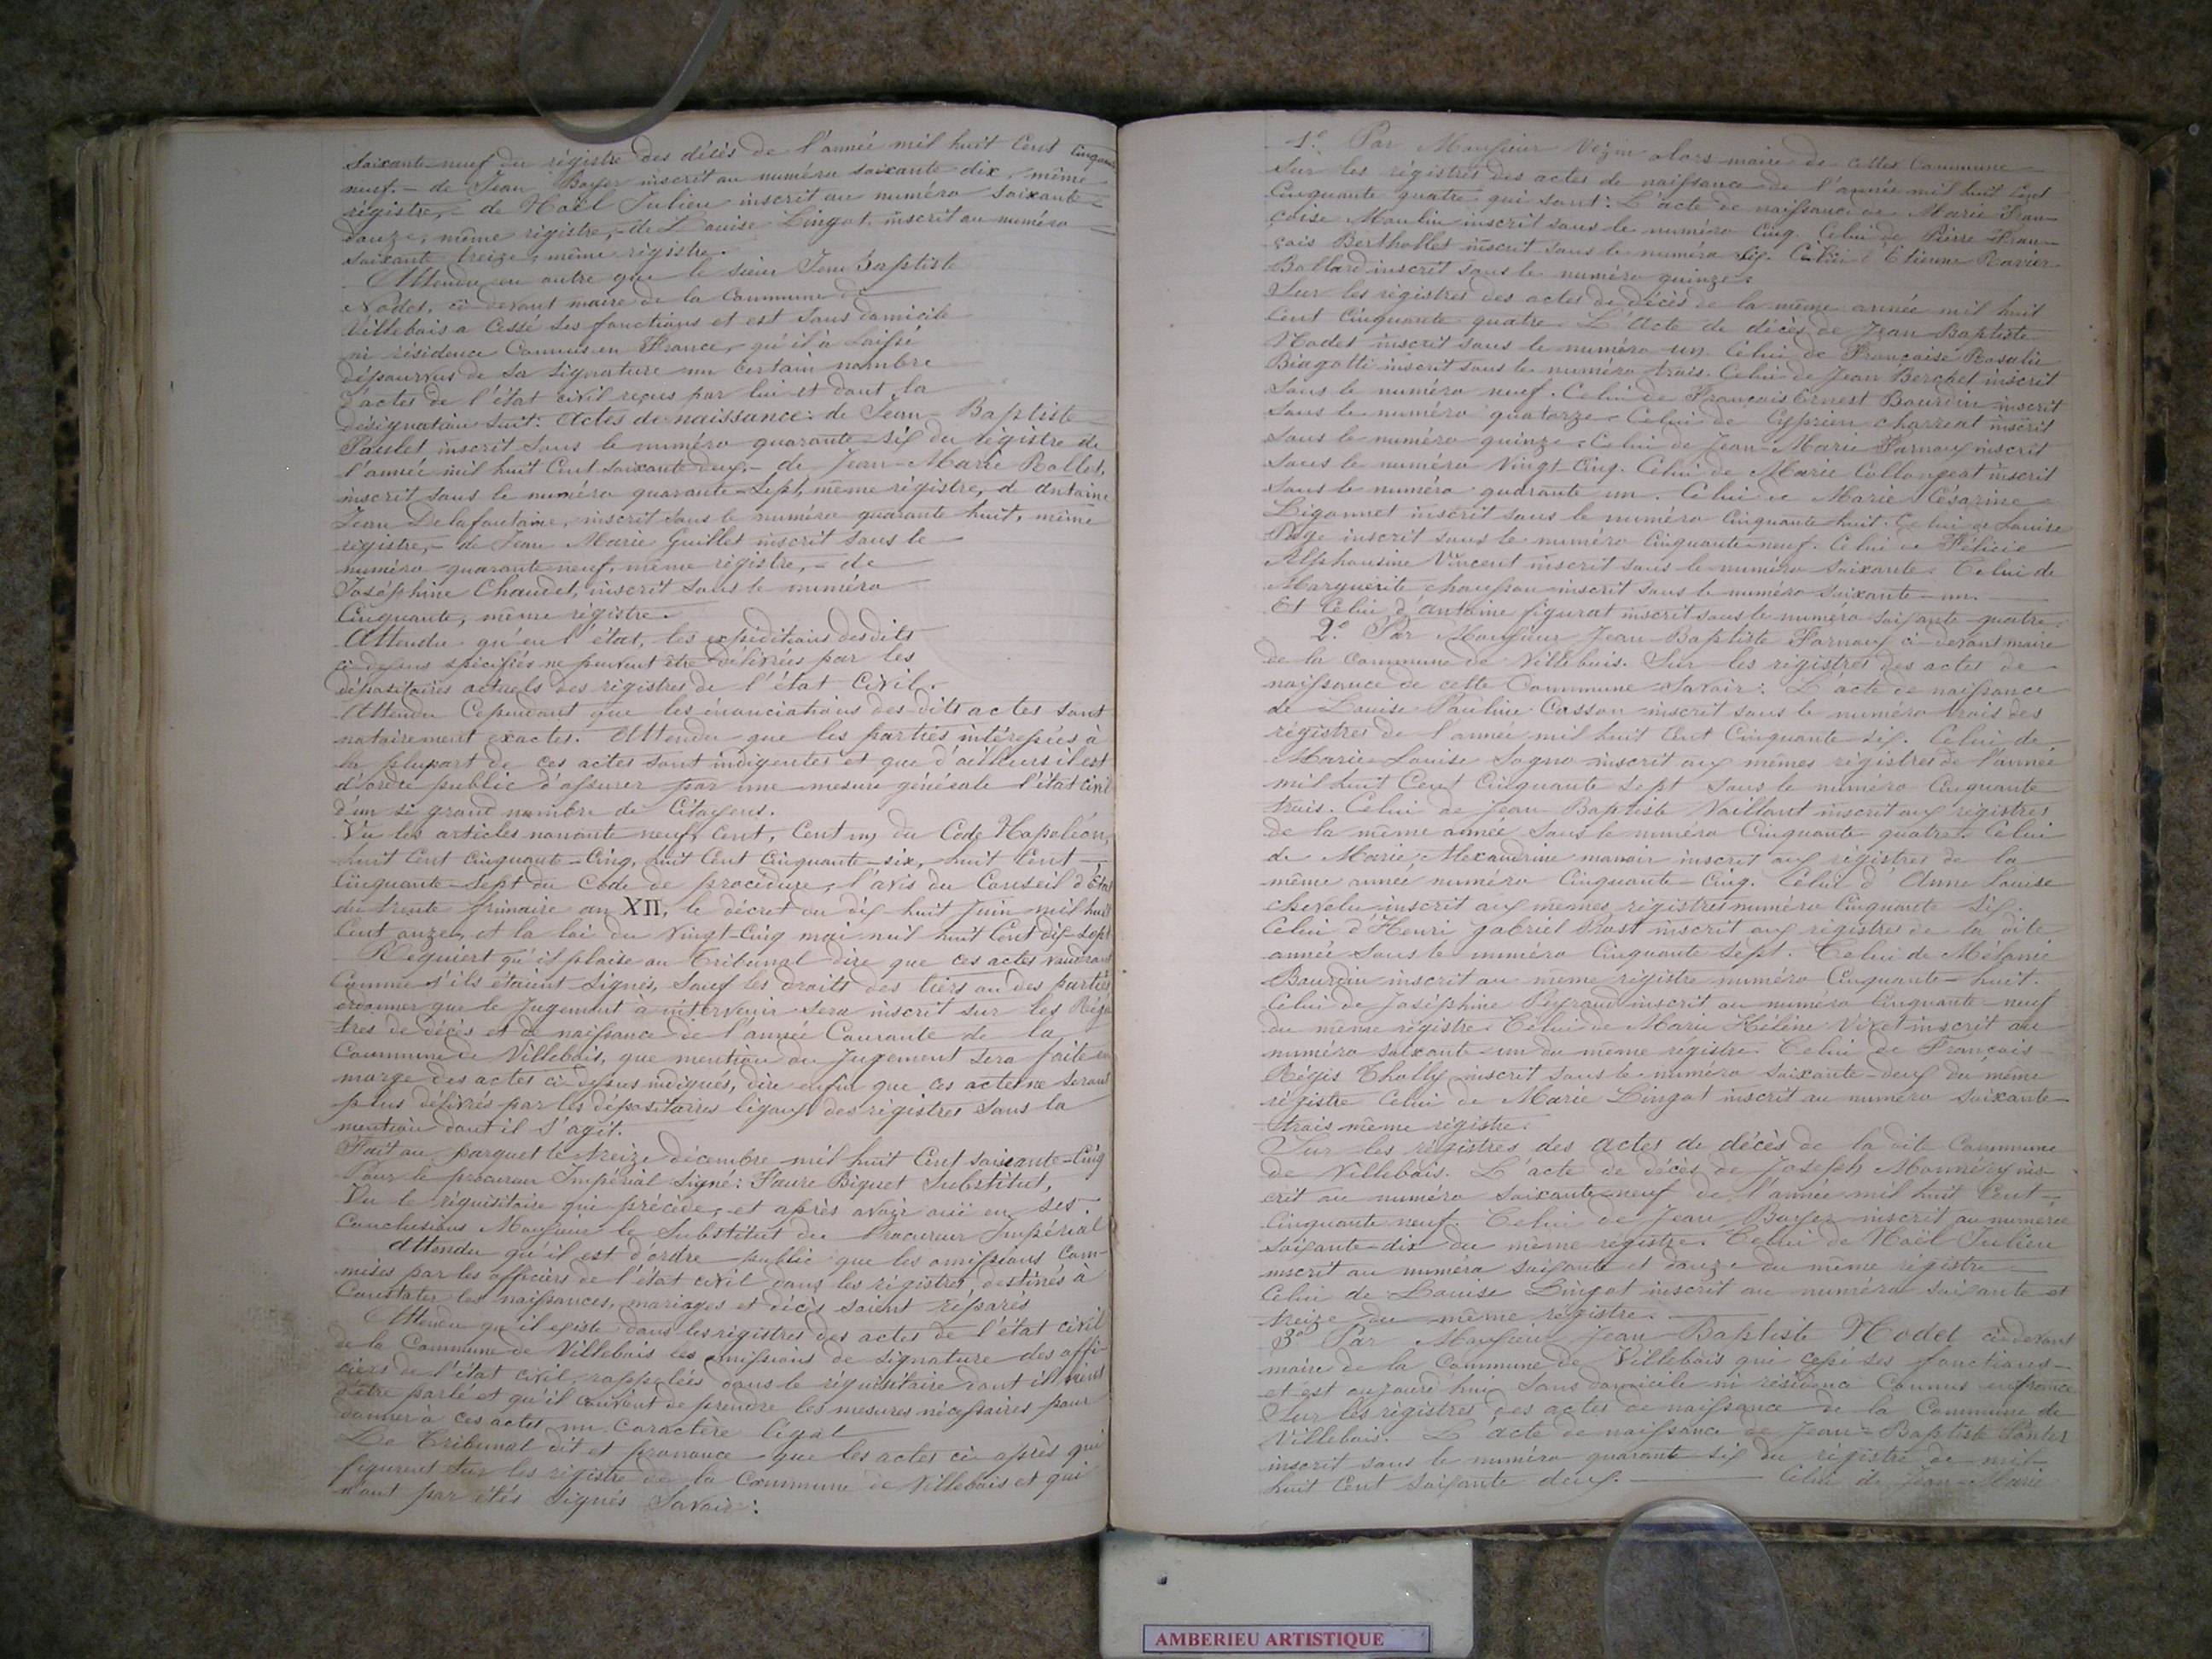 Soixante-neuf du régistre des décès de l'année mil huit Cent Cinquante
neuf. - de Jean Boyer inscrit au numéro soixante dix, même
régistre, - de Noël Julien inscrit au numéro soixante-
douze, même régistre, - de Louise Lingot inscrit au numéro
soixante treize, même régistre.
Attendu en outre que le sieur Jean Baptiste
Nodet, ci-devant maire de la Commune de
Villebois a Cessé ses fonctions et est sans domicile
ni résidence Connus en France, qu'il a laissé
dépourvus de sa signature un Certain nombre
d'actes de l'état civil reçus par lui et dont la
désignation suit: Actes de naissance: de Jean-Baptiste
Poulet inscrit sous le numéro quarante-six du régistre de
l'année mil huit Cent soixante deux, - de Jean-Marie Rollet,
inscrit sous le numéro quarante-sept, même régistre, de Antoine
Jean Delafontaine, inscrit sous le numéro quarante huit, même
régistre, - de Jean Marie Guillet inscrit sous le
numéro quarante-neuf, même régistre, - de
Joséphine Chaudet, inscrit sous le numéro
Cinquante, même régistre.
Attendu qu'en l'état, les expéditions desdits
ci-dessus spécifiés ne peuvent être délivrées par les
dépositaires actuels des régistres de l'état Civil.
Attendu Cependant que les énonciations des dits actes sont
notoirement exactes. Attendu que les parties intéressées à
la plupart de ces actes sont indigentes et que d'ailleurs il est
d'ordre public d'assurer par une mesure générale l'état civil
d'un si grand nombre de Citoyens.
Vu les articles nonante neuf, Cent, Cent un, du Code Napoléon,
huit Cent Cinquante-Cinq, huit Cent Cinquante-six, huit Cent-
Cinquante-Sept du Code de procédure, l'avis du Conseil d'Etat
du trente frimaire an XII, le décret du dix-huit Juin mil huit
Cent onze, et la loi du Vingt-Cinq mai mil huit Cent dix-sept
Réquiert qu'il plaise au Tribunal dire que ces actes vaudront
Comme s'ils étaient signés, sauf les droits des tiers ou des parties
ordonner que le Jugement à intervenir sera inscrit sur les Régis
tres de décès et de naissance de l'année Courante de la
Commune de Villebois, que mention du Jugement sera faite en
marge des actes ci-dessus indiqués, dire enfin que ces acte ne seront
plus délivrés par les dépositaires légaux des régistres sans la
mention dont il s'agit.
Fait au parquet le treize décembre mil huit Cent soixante-Cinq
Pour le procureur Impérial signé: Faure Biguet Substitut,
Vu le réquisitoire qui précède, et après avoir ouï en ses
Conclusions Monsieur le Substitut du Procureur Impérial
Attendu qu'il est d'ordre public que les omissions Com-
mises par les officiers de l'état civil dans les régistres destinés à
Constater les naissances, mariages et décès soient réparés
Attendu qu'il existe dans les régistres des actes de l'état civil
de la Commune de Villebois des omissions de signature des offi-
ciers de l'état civil, rappelées dans le réquisitoire dont il vient
d'être parlé et qu'il convient de prendre les mesures nécessaires pour
donner à ces actes un Caractère légal
Le Tribunal dit et prononce que les actes ci-après qui
figurent sur les régistre de la Commune de Villebois et qui
n'ont par étés signés Savoir:
1º Par Monsieur Vézin alors maire de cette Commune
Sur les régistres des actes de naissance de l'année mil huit Cent
Cinquante quatre qui sont: L'acte de naissance de Marie Fran-
çoise Moulin inscrit sous le numéro Cinq. Celui de Pierre Fran-
çois Berthollet inscrit sous le numéro six. Celui d'Etienne Ravier
Ballard inscrit sous le numéro quinze.
Sur les régistres des actes de décès de la même année mil huit
Cent Cinquante quatre. L'Acte de décès de Jean Baptiste
Nodet inscrit sous le numéro un. Celui de Françoise Rosalie
Biagotti inscrit sous le numéro trois. Celui de Jean Berchet inscrit
sous le numéro neuf. Celui de François Ernest Bourdin inscrit
sous le numéro quatorze. Celui de Cyprien Charreat inscrit
sous le numéro quinze. Celui de Jean-Marie Farnoux inscrit
sous le numéro Vingt-Cinq. Celui de Marie Collongeat inscrit
sous le numéro quarante un. Celui de Marie Césarine
Ligonnet inscrit sous le numéro Cinquante huit. Celui de Louise
inscrit sous le numéro Cinquante-neuf. Celui de Félicie
Alphonsine Vincent inscrit sous le numéro soixante. Celui de
Marguerite Chousson inscrit sous le numéro soixante-un.
Et Celui d'antoine figurat inscrit sous le numéro soixante-quatre.
2º Par Monsieur Jean-Baptiste Farnoux ci-devant maire
de la Commune de Villebois. Sur les régistres des actes de
naissance de cette Commune Savoir: L'acte de naissance
de Louise Pauline Cosson inscrit sous le numéro trois des
régistres de l'année mil huit Cent Cinquante six. Celui de
Marie-Louise Jogno inscrit aux mêmes régistres de l'année
mil huit Cent Cinquante Sept sous le numéro Cinquante
trois. Celui de Jean Baptiste Vaillant inscrit aux régistres
de la même année sous le numéro Cinquante quatre. Celui
de Marie Alexandrine manoir inscrit aux régistres de la
même année numéro Cinquante-Cinq. Celui d'Anne Louise
chevelu inscrit aux mêmes régistres numéro Cinquante six.
Celui d'Henri gabriel Prost inscrit aux régistres de la dite
année sous le numéro Cinquante Sept. Celui de Mélanie
Bourdin inscrit au même régistre numéro Cinquante-huit.
Celui de Joséphine Peyraud inscrit au numéro Cinquante-neuf
du même régistre. Celui de Marie Hélène Vizet inscrit au
numéro soixante-un du même régistre. Celui de François
Régis Tholly inscrit sous le numéro soixante-deux du même
régistre Celui de Marie Lingot inscrit au numéro soixante-
trois même régistre.
Sur les régistres des actes de décès de la dite Commune
de Villebois. L'acte de décès de Joseph Monnéry ins-
crit au numéro soixante-neuf de l'année mil huit Cent-
Cinquante neuf. Celui de Jean Boyer inscrit au numéro
soixante-dix du même régistre. Celui de Noël Julien
inscrit au numéro soixante et douze du même régistre
Celui de Louise Lingot inscrit au numéro soixante et
treize du même régistre.
3º Par Monsieur Jean Baptiste Nodet ci-devant
maire de la Commune de Villebois qui cessé ses fonctions-
et est aujourd'hui sans domicile ni résidence Connus en france
Sur les régistres des actes de naissance de la Commune de
Villebois. L'acte de naissance de Jean-Baptiste Poulet
inscrit sous le numéro quarante-six du régistre de mil-
huit Cent soixante deux. - Celui de Jean-Marie
AMBERIEU ARTISTIQUE